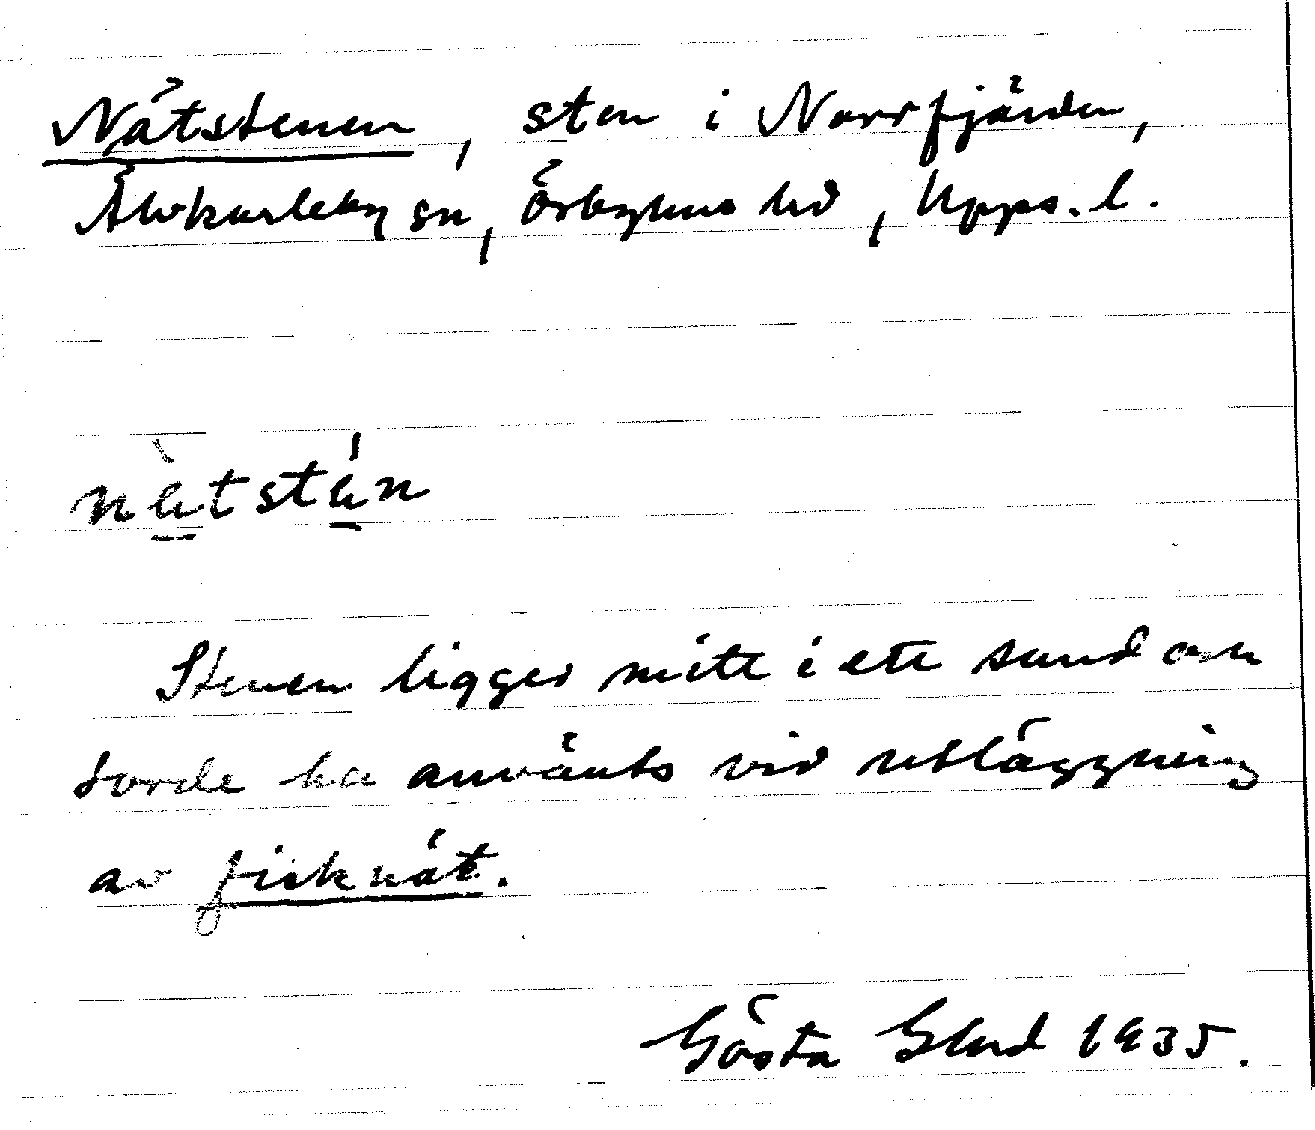 Nätstenen, sten i Norrfjärden,
Älvkarleby sn, Örbyhus hd, Upps. l.
nätstän
Stenen ligger mitt i ett sund och
torde ha använts vid utläggning
av fisknät.
Gösta Glad 1935.